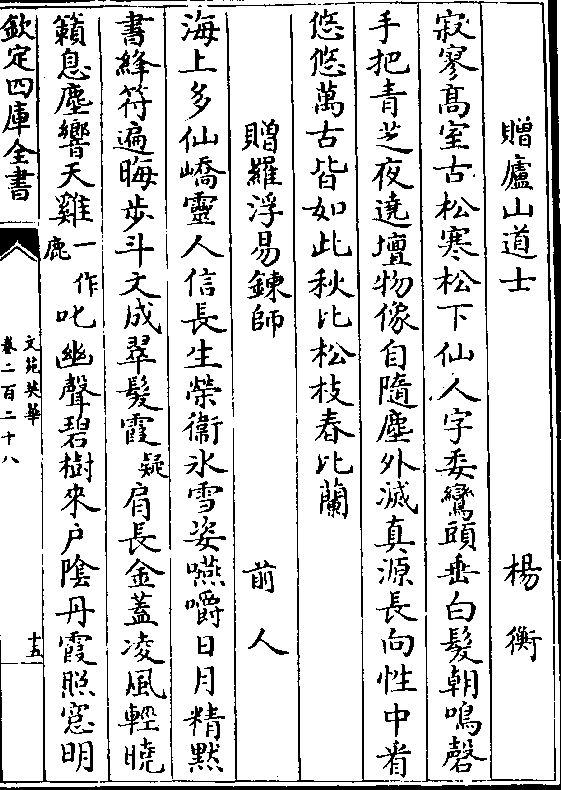 贈廬山道士　楊衡
寂寥髙室古松寒松下仙人字委鸞頭垂白髮朝鳴磬
手把青芝夜遶壇物像自隨塵外滅真源長向性中看
悠悠萬古皆如此秋比松枝春比蘭
贈羅浮易鍊師　前人
海上多仙嶠靈人信長生榮衞氷雪姿嚥嚼日月精黙
書絳符遍晦歩斗文成翠髮霞疑肩長金蓋凌風輕曉
籟息塵響天雞一作鹿叱幽聲碧樹來户陰丹霞照窓明
欽定四庫全書
文苑英華
卷二百二十八
十五